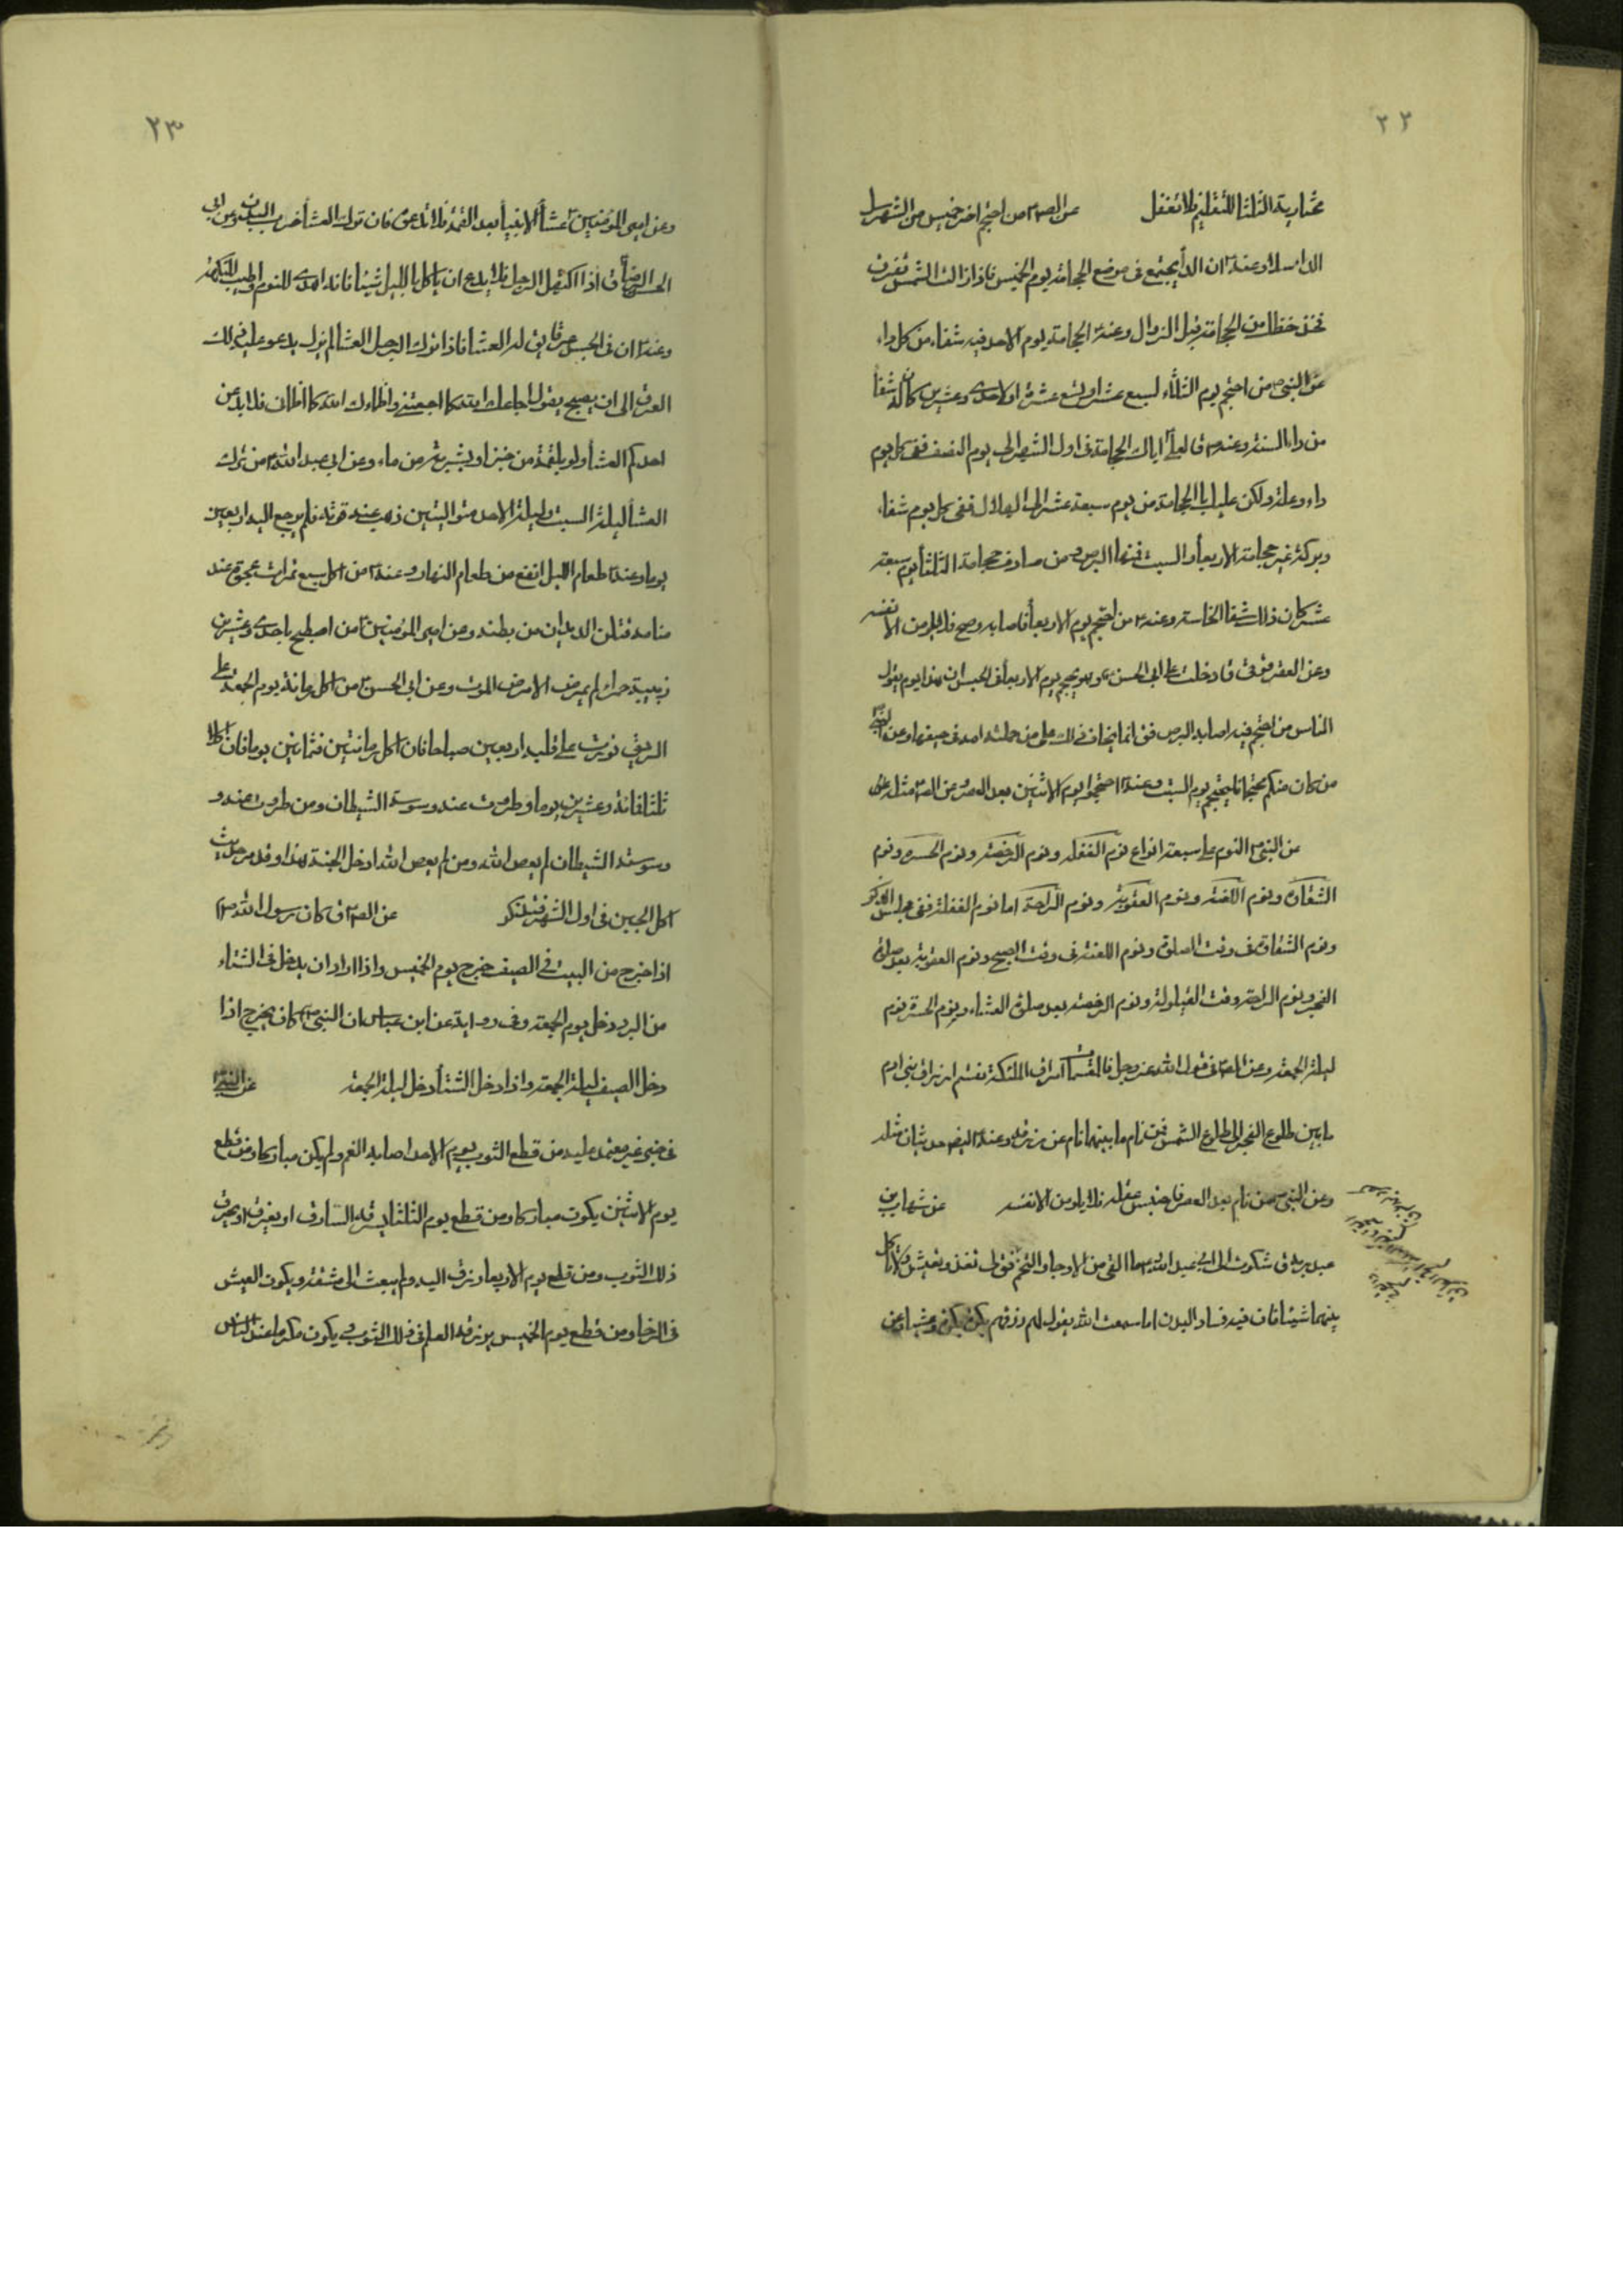 ٢٢
عن الص؏ من احتجم اخر خميس من الشهر سل
الداء سلا وعنه ان الدم يجتمع فى موضع الحجامة يوم الخميس فاذا زالت الشمس تفرق
فخذ حظك من الحجامة قبل الزوال وعنه الحجامة يوم الاحد فيه شفاء من كل داء
عن النبى ص من احتجم يوم الثلثاء لسبع عشر او تسع عشرة او لاحدى وعشرين كان له شفا
من داء السنة وعنه ص قال لعلى اياك الحجامة فى اول الشهر الى يوم النصف ففى كل يوم
داء وعلة ولكن عليك بالحجامة من يوم سبعة عشر الى الهلال ففى كل يوم شفاء
وبركة غير حجامة الاربعاء والسبت فمنها البرص ومن صادف حجامة الثلثا يوم سبعة
عشر كان ذلك شفا الى السنة وعنه ص من احتجم يوم الاربعاء فاصابه وضح فلا يلومن الا نفسه
وعن العقرقوفى قا دخلت على ابى الحسن ع وهو يحتجم يوم الاربعاء فى الحبس ان هذا يوم يقول
الناس من احتجم فيه اصابه البرص فق انما يخاف ذلك على من حملته امه فى حيضها وعن النبى
من كان منكم محتجما فليحتجم يوم السبت وعنه احتجموا يوم الاثنين بعد العصر وعن الص مثل
عن النبى ص النوم على سبعة انواع نوم الغفلة ونوم الرخصة ونوم الحسرة ونوم
الشقاوة ونوم اللعنة ونوم العقوبة ونوم الراحة اما نوم الغفلة ففى مجلس الذكر
ونوم الشقاوة فى وقت الصلوة ونوم اللعنة فى وقت الصبح ونوم العقوبة بعد صلوة
الفجر ونوم الراحة وقت القيلولة ونوم الرخصة بعد صلوة العشاء ونوم الحسرة نوم
ليلة الجمعة وعن الص فى قول الله عز وجل فالمقسمات امرا ق الملئكة تقسم ارزاق بنى ادم
ما بين طلوع الفجر الى طلوع الشمس فمن نام ما بينهما نام عن رزقه وعنه
وعن النبى ص من نام بعد العصر فاختلس عقله فلا يلومن الا نفسه عن شهاب بن
عبد ربه ق شكوت الى ابى عبد الله ع ما القى من الاوجاع والتخم فق لى تغد وتعش ولا تاكل
بينهما شيئا فان فيه فساد البدن اما سمعت الله يقول لهم رزقهم بكرة وعشيا وعن
٢٣
وعن امير المؤمنين ع عشاء الانبياء بعد العتمة فلا تدعوه فان ترك العشاء خراب البدن وعن ابى
الحسن الرضا ق اذا اكتهل الرجل فلا يدع ان ياكل بالليل شيئا فانه اهدى للنوم واطيب للنكهة
وعنه ان فى الجسد عرقا يق له العشا فاذا ترك الرجل العشا لم يزل يدعو عليه ذلك
العرق الى ان يصبح يقول اجاعك الله كما اجعتنى واظماك الله كما اظماتنى فلا يدعن
احدكم العشا ولو بلقمة من خبز او بشربة من ماء وعن ابى عبد الله ع من ترك
العشا ليلة السبت وليلة الاحد متواليتين ذهب عنه قوته فلم يرجع اليه اربعين
يوما وعنه طعام الليل انفع من طعام النهار وعنه من اكل سبع تمرات عجوة عند
منامه قتلن الديدان من بطنه وعن امير المؤمنين ع من اصطبح باحدى وعشرين
زبيبة حمراء لم يمرض الا مرض الموت وعن ابى الحسن ع من اكل رمانة يوم الجمعة على
الريق نورت على قلبه اربعين صباحا فان اكل رمانتين فثمانين يوما فان اكل
ثلثا فمائة وعشرين يوما وطردت عنه وسوسة الشيطان ومن طردت عنه
وسوسة الشيطان لم يعص الله ومن لم يعص الله ادخل الجنة هذا وقد مر حديث
اكل الجبن فى اول الشهر فتذكر عن الص ق كان رسول الله ص
اذا خرج من البيت فى الصيف خرج يوم الخميس واذا اراد ان يدخل فى الشتاء
من البرد دخل يوم الجمعة وفى رواية عن ابن عباس ان النبى ص كان يخرج اذا
دخل الصيف ليلة الجمعة واذا دخل الشتاء دخل ليلة الجمعة عن النبى
فى خبر غير معتمد عليه من قطع الثوب يوم الاحد اصابه الغم ولم يكن مباركا ومن قطع
يوم الاثنين يكون مباركا ومن قطع يوم الثلثا يسرقه السارق او يغرق او يحرق
ذلك الثوب ومن قطع يوم الاربعا رزق اليه ولم يبعث الى مشقة ويكون العيش
فى الرخا ومن قطع يوم الخميس يرزقه العلم فى ذلك الثوب ويكون مكرما عند الناس